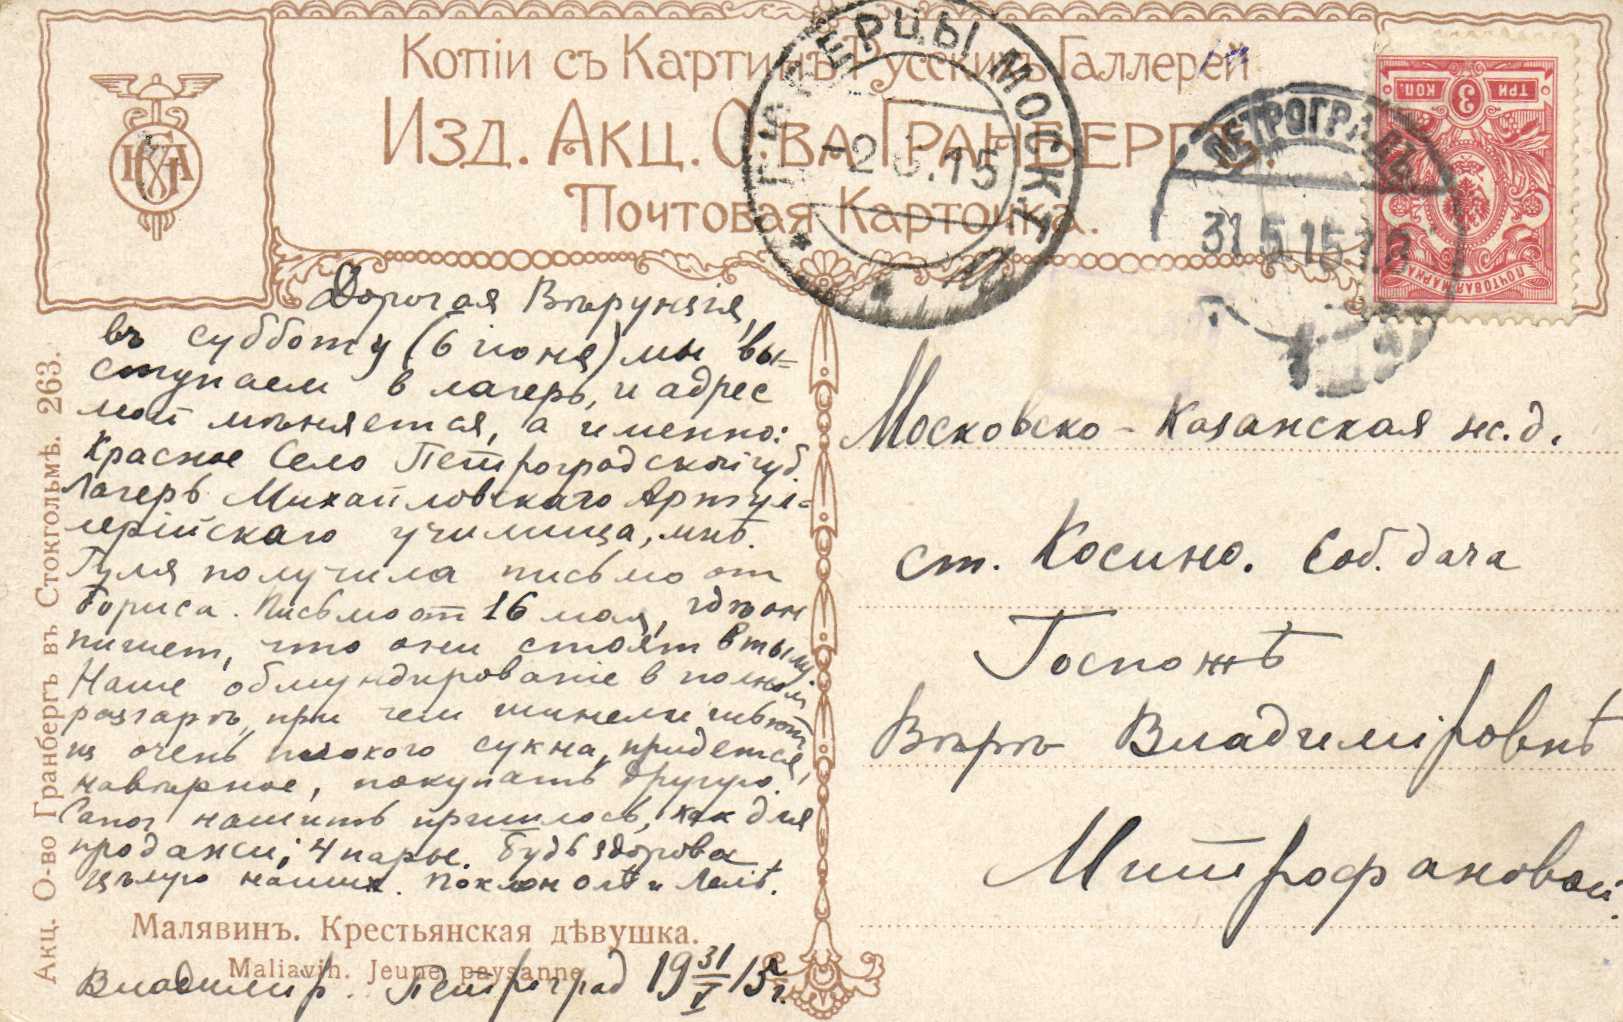 Копіи съ Картинъ Русскихъ Галлерей
Изд. Акц. О-ва Гранбергъ.
Почтовая Карточка.
ЛЮБЕРЦЫ МОСК.
-2 6.15
ПЕТРОГРАДЪ
31.5.15
ТРИ 3 КОП.
ПОЧТОВАЯ МАРКА
Дорогая Вѣруня,
въ субботу (6 іюня) мы вы=
ступаем в лагерь, и адрес
мой мѣняется, а именно:
Красное Село Петроградской губ
Лагерь Михайловскаго Артил=
лерійскаго училища, мнѣ.
Гуля получила письмо от
Бориса. Письмо от 16 мая, гдѣ он
пишет, что они стоят в тылу
Наше обмундированіе в полном
разгарѣ, при чем шинели шьют
из очень плохого сукна, придется,
навѣрное, покупать другую.
Сапог нашить пришлось, как для
продажи; 4 пары. Будь здорова
Цѣлую наших. Поклон Олѣ и Лелѣ.
Малявинъ. Крестьянская дѣвушка.
Maliavin. Jeune paysanne.
Владимір. Петроград 19 31/V 15 г.
Акц. О-во Гранбергъ въ Стокгольмѣ. 263.
Московско-Казанская ж.д.
ст. Косино. Соб. дача
Госпожѣ
Вѣрѣ Владиміровнѣ
Митрофановой.